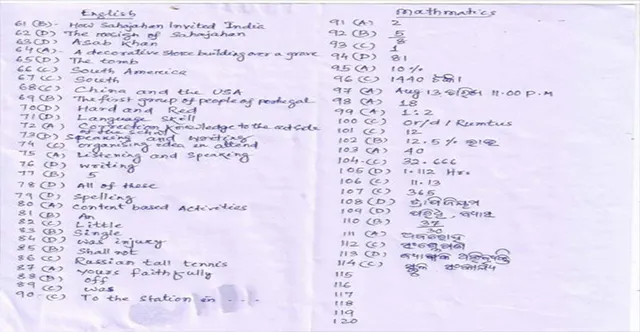 English
61 (B) - How Sahajahan Invited India
62 (D) The reign of Sahajahan
63 (D) Asab Khan
64 (A) - A decorative stone building over a grave
65 (D) The tomb
66 (C) South America
67 (C) South
68 (C) China and the USA
69 (B) The first group of people of portugal
70 (D) Hard and Red
71 (D) Language Skill
72 (A) Connection knowledge to the out side
of the school
73 (D) Speaking and writing
74 (C) organising idea in
75 (A) Listening and Speaking
76 (D) writing
77 (B) 5
78 (D) All of these
79 (D) Spelling
80 (A) Content based Activities
81 (B) An
82 (C) Little
83 (B) Single
84 (D) was injury
85 (B) Shall not
86 (C) Russian tall tennis
87 (A) Yours faithfully
88 (B) off
89 (C) was
90 - (C) To the station in . . . .
Mathmatics
91 (A) 2
92 (B) 5
8
93 (C) 1
94 (D) 81
95 (A) 10%
96 (C) 1440 ଟଙ୍କା
97 (A) Aug 13 ରାତ୍ରି 11:00 P.M
98 (A) 18
99 (A) 1:2
100 (C) Or/d / Rumtus
101 (C) 12
102 (B) 12.5%
103 (A) 40
104 - (C) 32.666
105 (D) 1.112 Hr.
106 (C) 11.13
107 (C) 365
108 (D)
109 (D)
110 (B) 37
30
111 (A)
112 (C)
113 (D)
114 (C)
115
116
117
118
119
120